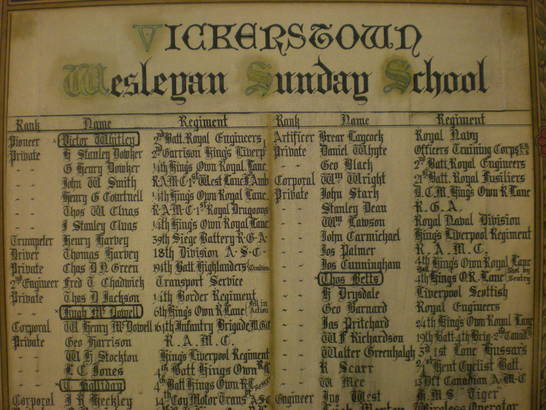 Vickerstown
Wesleyan Sunday School
Rank Name Regiment
Pioneer Victor Whitley 2nd Batt. Royal Engineers
Private H Stanley Dowker 2nd Garrison Kings Liverp
- - G Henry Dowker 4th Kings Own Royal Lanc.
- - John W Smith R.A.M.C. 1st West Lanc F Amb
- - Henry G Courtnell 4th Kings Own Royal Lanc.
- - Thos W Cluas R.A.M.C. 1st Royal Dragoons
- - J Stanley Clvas 4th Kings Own Royal Lanc.
Trumpeter Henry Harvey 39th Siege Battery R.G.A.
Driver Thomas Harvey 18th Division A.S.C.
Private Chas D N Green 94th Batt. Highlanders
2nd Engineer Fred T Chadwick Transport Service
Private Thos D Jackson 14th Border Regiment
- - Hugh Mc Dowell 6th Kings Own R Lanc Kill in Action
Corporal W Henry Mc Dowell 64th Infantry Brigade M.G.C
Private Geo Harrison R. A. M. C.
- - W H Stockton Kings Liverpool Regiment
- - L C Jones 4th Batt Kings Own
- - T Halliday 4th Batt Kings Own R
Corporal J R Heckley Coy Motor Trans A S
Rank Name Regiment
Artificer Brear Laycock Royal Navy
Private Daniel Whyte Officers Training Corps
- - Geo Black 2nd Batt. Royal Engineers
Corporal Wm Wright 21st Batt. Royal Fusiliers
Private John Stark D.C.M. Kings Own R Lanc
- - Stanley Dean R. G. A.
- - Wm Lawson Royal Naval Division
- - John Carmichael Kings Liverpool Regiment
- - Jos Palmer R. A. M. C.
- - Jos Cunningham 4th Kings Own Royal Lanc
- - Thos Betts 4th Kings O.R. Lanc Shot by Sentry
- - H Drysdale Liverpool Scottish
- - Geo Barnard Royal Engineers
- - Jas Pritchard 24th Kings Own Royal Lanc
- - W F Richardson 19th Batt 4th Brig 2nd Canad.
- - Walter Greenhalgh 3rd 1st Lanc Hussars
- - R Scarr Kent Cyclist Batt.
- - W Mee Off Canadian A M C
Engineer Ino West H.M.S. Tiger
Wireless Operator